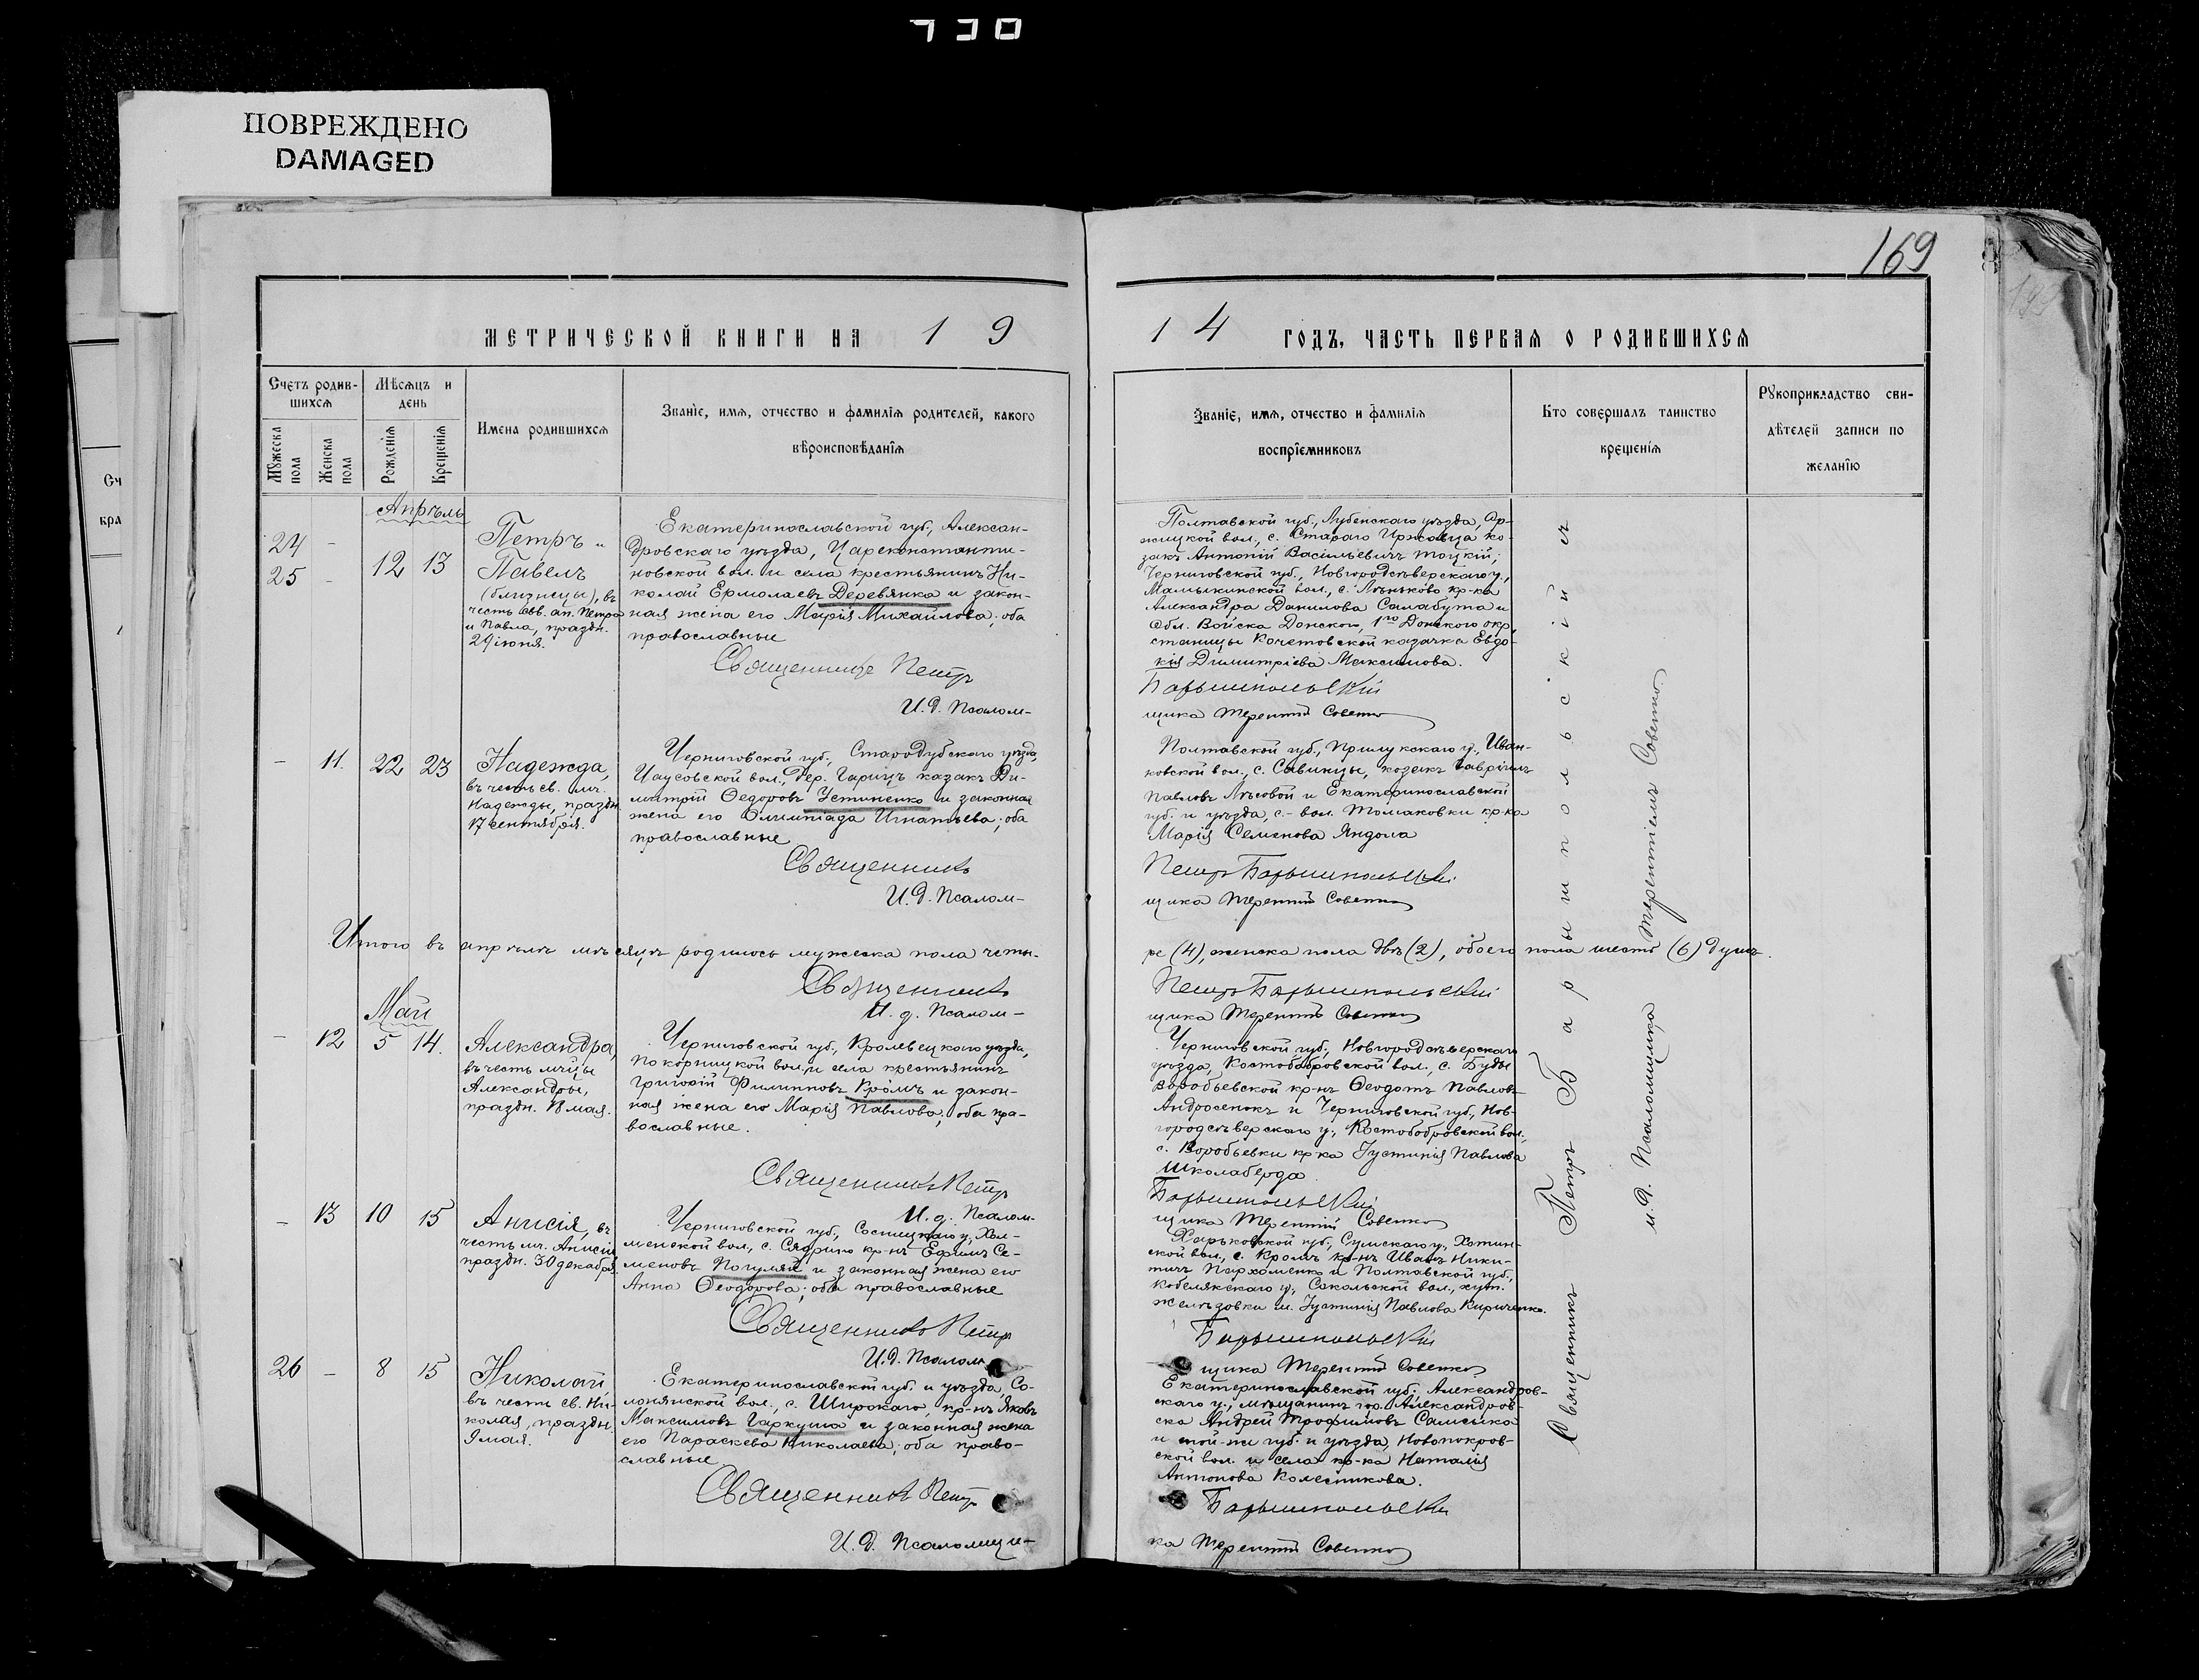 730
ПОВРЕЖДЕНО
DAMAGED
169
МЕТРИЧЕСКОЙ КНИГИ НА 1 9
1 4 ГОДЪ, ЧАСТЬ ПЕРВАЯ О РОДИВШИХСЯ
Счетъ родив-
шихся
Мужеска пола
Женска пола
Мѣсяцъ и
день
Рожденія
Крещенія
Имена родившихся
Званіе, имя, отчество и фамилія родителей, какого
вѣроисповѣданія
Званіе, имя, отчество и фамилія
воспріемниковъ
Кто совершалъ таинство
крещенія
Рукоприкладство сви-
дѣтелей записи по
желанію
Апрѣль
24 -
25 -
12 13
Петръ и
Павелъ
(близнецы), въ
честь свв. ап. Петра
и Павла, праздн.
29 іюня.
Екатеринославской губ., Александ-
ровскаго уѣзда, Цареконстанти-
новской вол. и села крестьянинъ Ни-
колай Ермолаевъ Деревянка и закон-
ная жена его Марія Михайлова, оба
православные
Священникъ Петръ
И. д. Псалом-
Полтавской губ., Лубенскаго уѣзда,
вол., с. Стараго ко-
закъ Антоній Васильевичъ Тоцкій;
Черниговской губ., Новгородсѣверскаго у.,
Мамыкинской вол., с. кр-ка
Александра Данилова Салабута и
Обл. Войска Донского, 1го Донского окр.
станицы Кочетовской казачка Евдо-
кія Димитріева Максимова.
Барышпольскій
щика Терентій Совенко
- 11. 22 23
Надежда,
въ честь св. мч.
Надежды, праздн.
17 сентября.
Черниговской губ., Стародубскаго уѣзда,
вол., дер. Гарицъ казакъ Ди-
митрій Ѳедоровъ Устиненко и законная
жена его Олимпіада Игнатьева, оба
православные
Священникъ
И. д. Псалом-
Полтавской губ., Прилукскаго у., Иван-
ковской вол., с. Савинцы, козакъ Гавріилъ
Павловъ Лѣсовой и Екатеринославской
губ. и уѣзда, с.- вол. Томаковки кр-ка
Марія Семенова Яндола
Петръ Барышпольскій
щика Терентій Совенко
Итого въ апрѣлѣ мѣсяцѣ родилось мужеска пола четы-
ре (4), женска пола двѣ (2), обоего пола шесть (6) душъ.
Священникъ
Петръ Барышпольскій
И. д. Псалом-
щика Терентій Совенко
Май
- 12 5 14.
Александра,
въ честь мчцы
Александры,
праздн. 18 мая.
Черниговской губ., Кролевецкаго уѣзда,
Покорницкой вол. и села крестьянинъ
Григорій Филипповъ Кромъ и закон-
ная жена его Марія Павлова, оба пра-
вославные.
Священникъ Петръ
И. д. Псалом-
Черниговской губ., Новгородсѣверскаго
уѣзда, Костобобровской вол., с. Буды
Воробьевской кр-нъ Ѳеодотъ Павловъ
Андросенокъ и Черниговской губ., Нов-
городсѣверскаго у., Костобобровской вол.,
с. Воробьевки кр-ка Іустинія Павлова
Школаберда
Барышпольскій
щика Терентій Совенко
- 13 10 15
Анисія, въ
честь мч. Анисіи
праздн. 30 декабря.
Черниговской губ., Сосницкаго у., Хол-
менской вол., с. Сядрино кр-нъ Ефимъ Се-
меновъ Погуляй и законная жена его
Анна Ѳеодорова, оба православные
Священникъ Петръ
И. д. Псалом-
Харьковской губ., Сумскаго у., Хотин-
ской вол., с. Кромъ кр-нъ Иванъ Ники-
тичъ Пархоменко и Полтавской губ.,
Кобелякскаго у., Сокольской вол., хут.
м. Іустинія Павлова Кириченко.
Барышпольскій
щика Терентій Совенко
26 - 8 15
Николай,
въ честь св. Ни-
колая, праздн.
9 мая.
Екатеринославской губ. и уѣзда, Со-
лонянской вол., с. Широкаго, кр-нъ Яковъ
Максимовъ Гаркуша и законная жена
его Параскева Николаева, оба право-
славные
Священникъ Петръ
И. д. Псаломщи-
Екатеринославской губ., Александров-
скаго у., мѣщанинъ гор. Александров-
ска Андрей Трофимовъ Самсыка
и той-же губ. и уѣзда, Новопокров-
ской вол. и села кр-ка Наталія
Антонова Колесникова.
Барышпольскій
ка Терентій Совенко
Священникъ Петръ Барышпольскій
и. д. Псаломщика Терентій Совенко